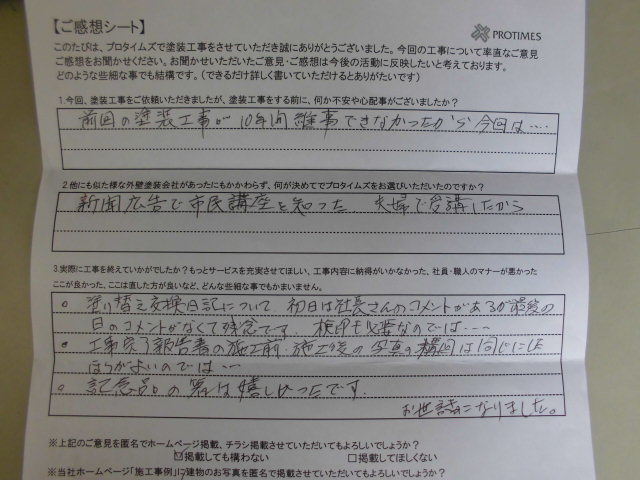 【ご感想シート】
PROTIMES
このたびは、プロタイムズで塗装工事をさせていただき誠にありがとうございました。今回の工事について率直なご意見
ご感想をお聞かせください。お聞かせいただいたご意見・ご感想は今後の活動に反映したいと考えております。
どのような些細な事でも結構です。（できるだけ詳しく書いていただけるとありがたいです）
1.今回、塗装工事をご依頼いただきましたが、塗装工事をする前に、何か不安や心配事がございましたか？
前回の塗装工事が10年間維事できなかったから今回は‥‥
2.他にも似た様な外壁塗装会社があったにもかかわらず、何が決めてでプロタイムズをお選びいただいたのですか？
新聞広告で市民講座を知った 夫婦で受講したから
3.実際に工事を終えていかがでしたか？もっとサービスを充実させてほしい、工事内容に納得がいかなかった、社員・職人のマナーが悪かった
ここが良かった、ここは直した方が良いなど、どんな些細な事でもかまいません。
○ 塗り替え交換日記について 初日は社長さんのコメントがあるが最後の
日のコメントがなくて残念です。 検印も必要なのでは‥‥
○ 工事完了報告書の施工前、施工後の写真の構図は同じにした
ほうがよいのでは‥
○ 記念品の は嬉しかったです。
お世話になりました。
※上記のご意見を匿名でホームページ掲載、チラシ掲載させていただいてもよろしいでしょうか？
☑掲載しても構わない □掲載してほしくない
※当社ホームページ「施工事例」に建物のお写真を匿名で掲載させていただいてもよろしいでしょうか？